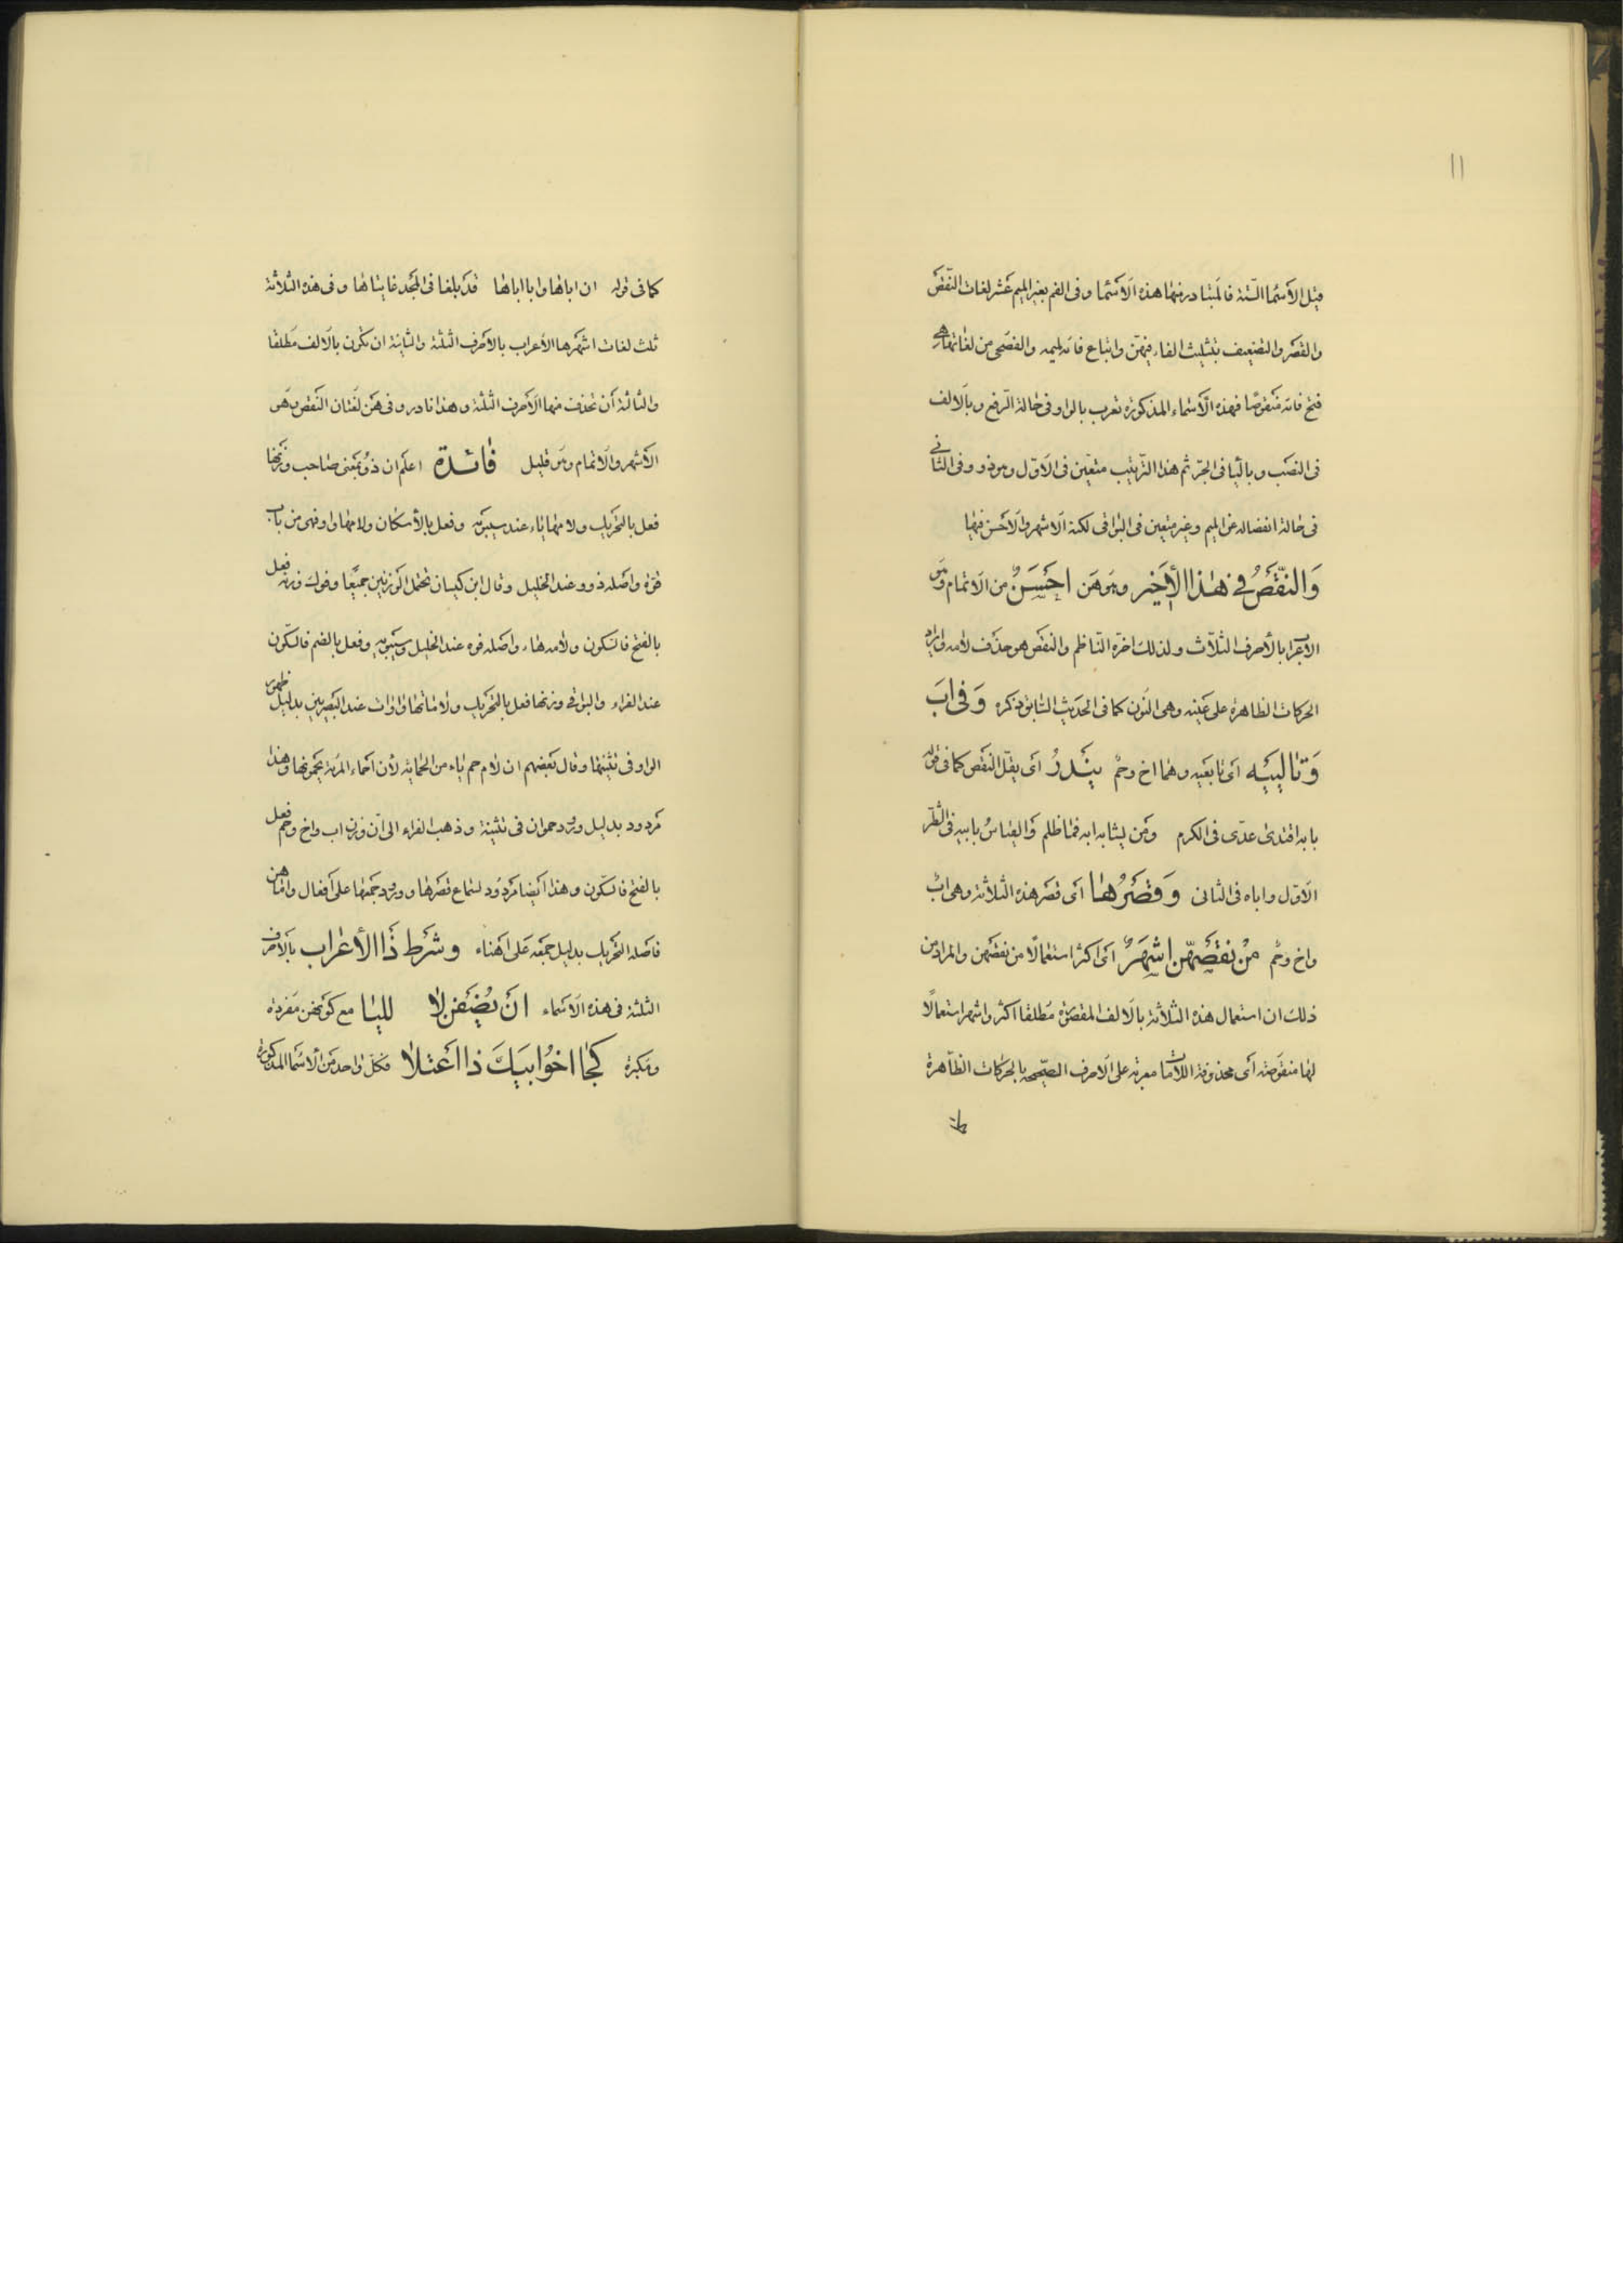 ١١
قيل الأسما الستة فالمتبادر منها هذه الأسما وفى الفم بغير الميم عشر لغات النقص
والقصر والتضعيف بتثليث الفاء فيهن واتباع فائه لميمه والفصحى من لغاتها هى
فتح فائه منقوصا فهذه الأسماء المذكورة تعرب بالواو فى حالة الرفع وبالالف
فى النصب وباليا فى الجر ثم هذا الترتيب متعين فى الاول وهو ذو وفى الثانى
فى حالة انفصاله عن الميم وغير متعين فى البواقى لكنه الاشهر والاحسن فيها
وَالنّقصُ فى هٰذا الأخير وهو هَن احسَنُ من الاتمام وهو
الاعراب بالأحرف الثلاث ولذلك اخره الناظم والنقص هو حذف لامه
الحركات الظاهرة على عينه وهى النون كما فى الحديث السابق ذكره وَفى ابَ
وَتالييه اى تابعيه وهما اخ وحم يندُرُ اى يقل النقص كما فى قوله
بابه اقتدى عدى فى الكرم ومن يشابه ابه فما ظلم والقياس بابيه فى
الاول واباه فى الثانى وَقصرُها اى قصر هذه الثلاثة وهى اب
واخ وحم منْ نقصِهنّ اشهَرُ اى اكثر استعمالا من نقصهن والمراد من
ذلك ان استعمال هذه الثلاثة بالالف المقصورة مطلقا اكثر واشهر استعمالا
لها منقوصة اى محذوفة اللامات معربة على الاحرف الصحيحه بالحركات الظاهرة
كما فى قوله ان اباها وابا اباها قد بلغا فى المجد غايتاها وفى هذه الثلاثة
ثلث لغات اشهرها الأعراب بالاحرف الثلثة والثانية ان تكون بالالف مطلقا
والثالثة أن تحذف منها الاحرف الثلثة وهذا نادر وفى هن لغتان النقص وهو
الأشهر والاتمام وهو قليل فائدة اعلم ان ذو بمعنى صاحب وزنها
فعل بالتحريك ولامها ياء عند سيبويه وفعل بالأسكان ولامها واو فهى من باب
قوة واصله ذوو عند الخليل وقال ابن كيسان تحتمل الوزنين جميعا وفوك وزنه فعل
بالفتح فالسكون ولامه هاء واصله فوه عند الخليل وسيبويه وفعل بالضم فالسكون
عند الفراء والبواقى وزنها فعل بالتحريك ولاماتها واوات عند البصريين بدليل ظهور
الواو فى تثنيتها وقال بعضهم ان لام حم ياء من الحماية لأن احماء المرءة يحمونها وهذا
مردود بدليل ورود حموان فى تثنيته وذهب الفراء الى أن وزن اب واخ وحم فعل
بالفتح فالسكون وهذا أيضا مردود لسماع قصرها وورود جمعها على أفعال واما هن
فاصله التحريك بدليل جمعه على اهناء وشرط ذَا الأعراب بالاحرف
الثلثة فى هذه الاسماء انَ يُضَفن لا لليا مع كونهن مفردة
ومكبرة كجا اخُو ابيكَ ذا اعتلا فكل واحد من الاسما المذكورة